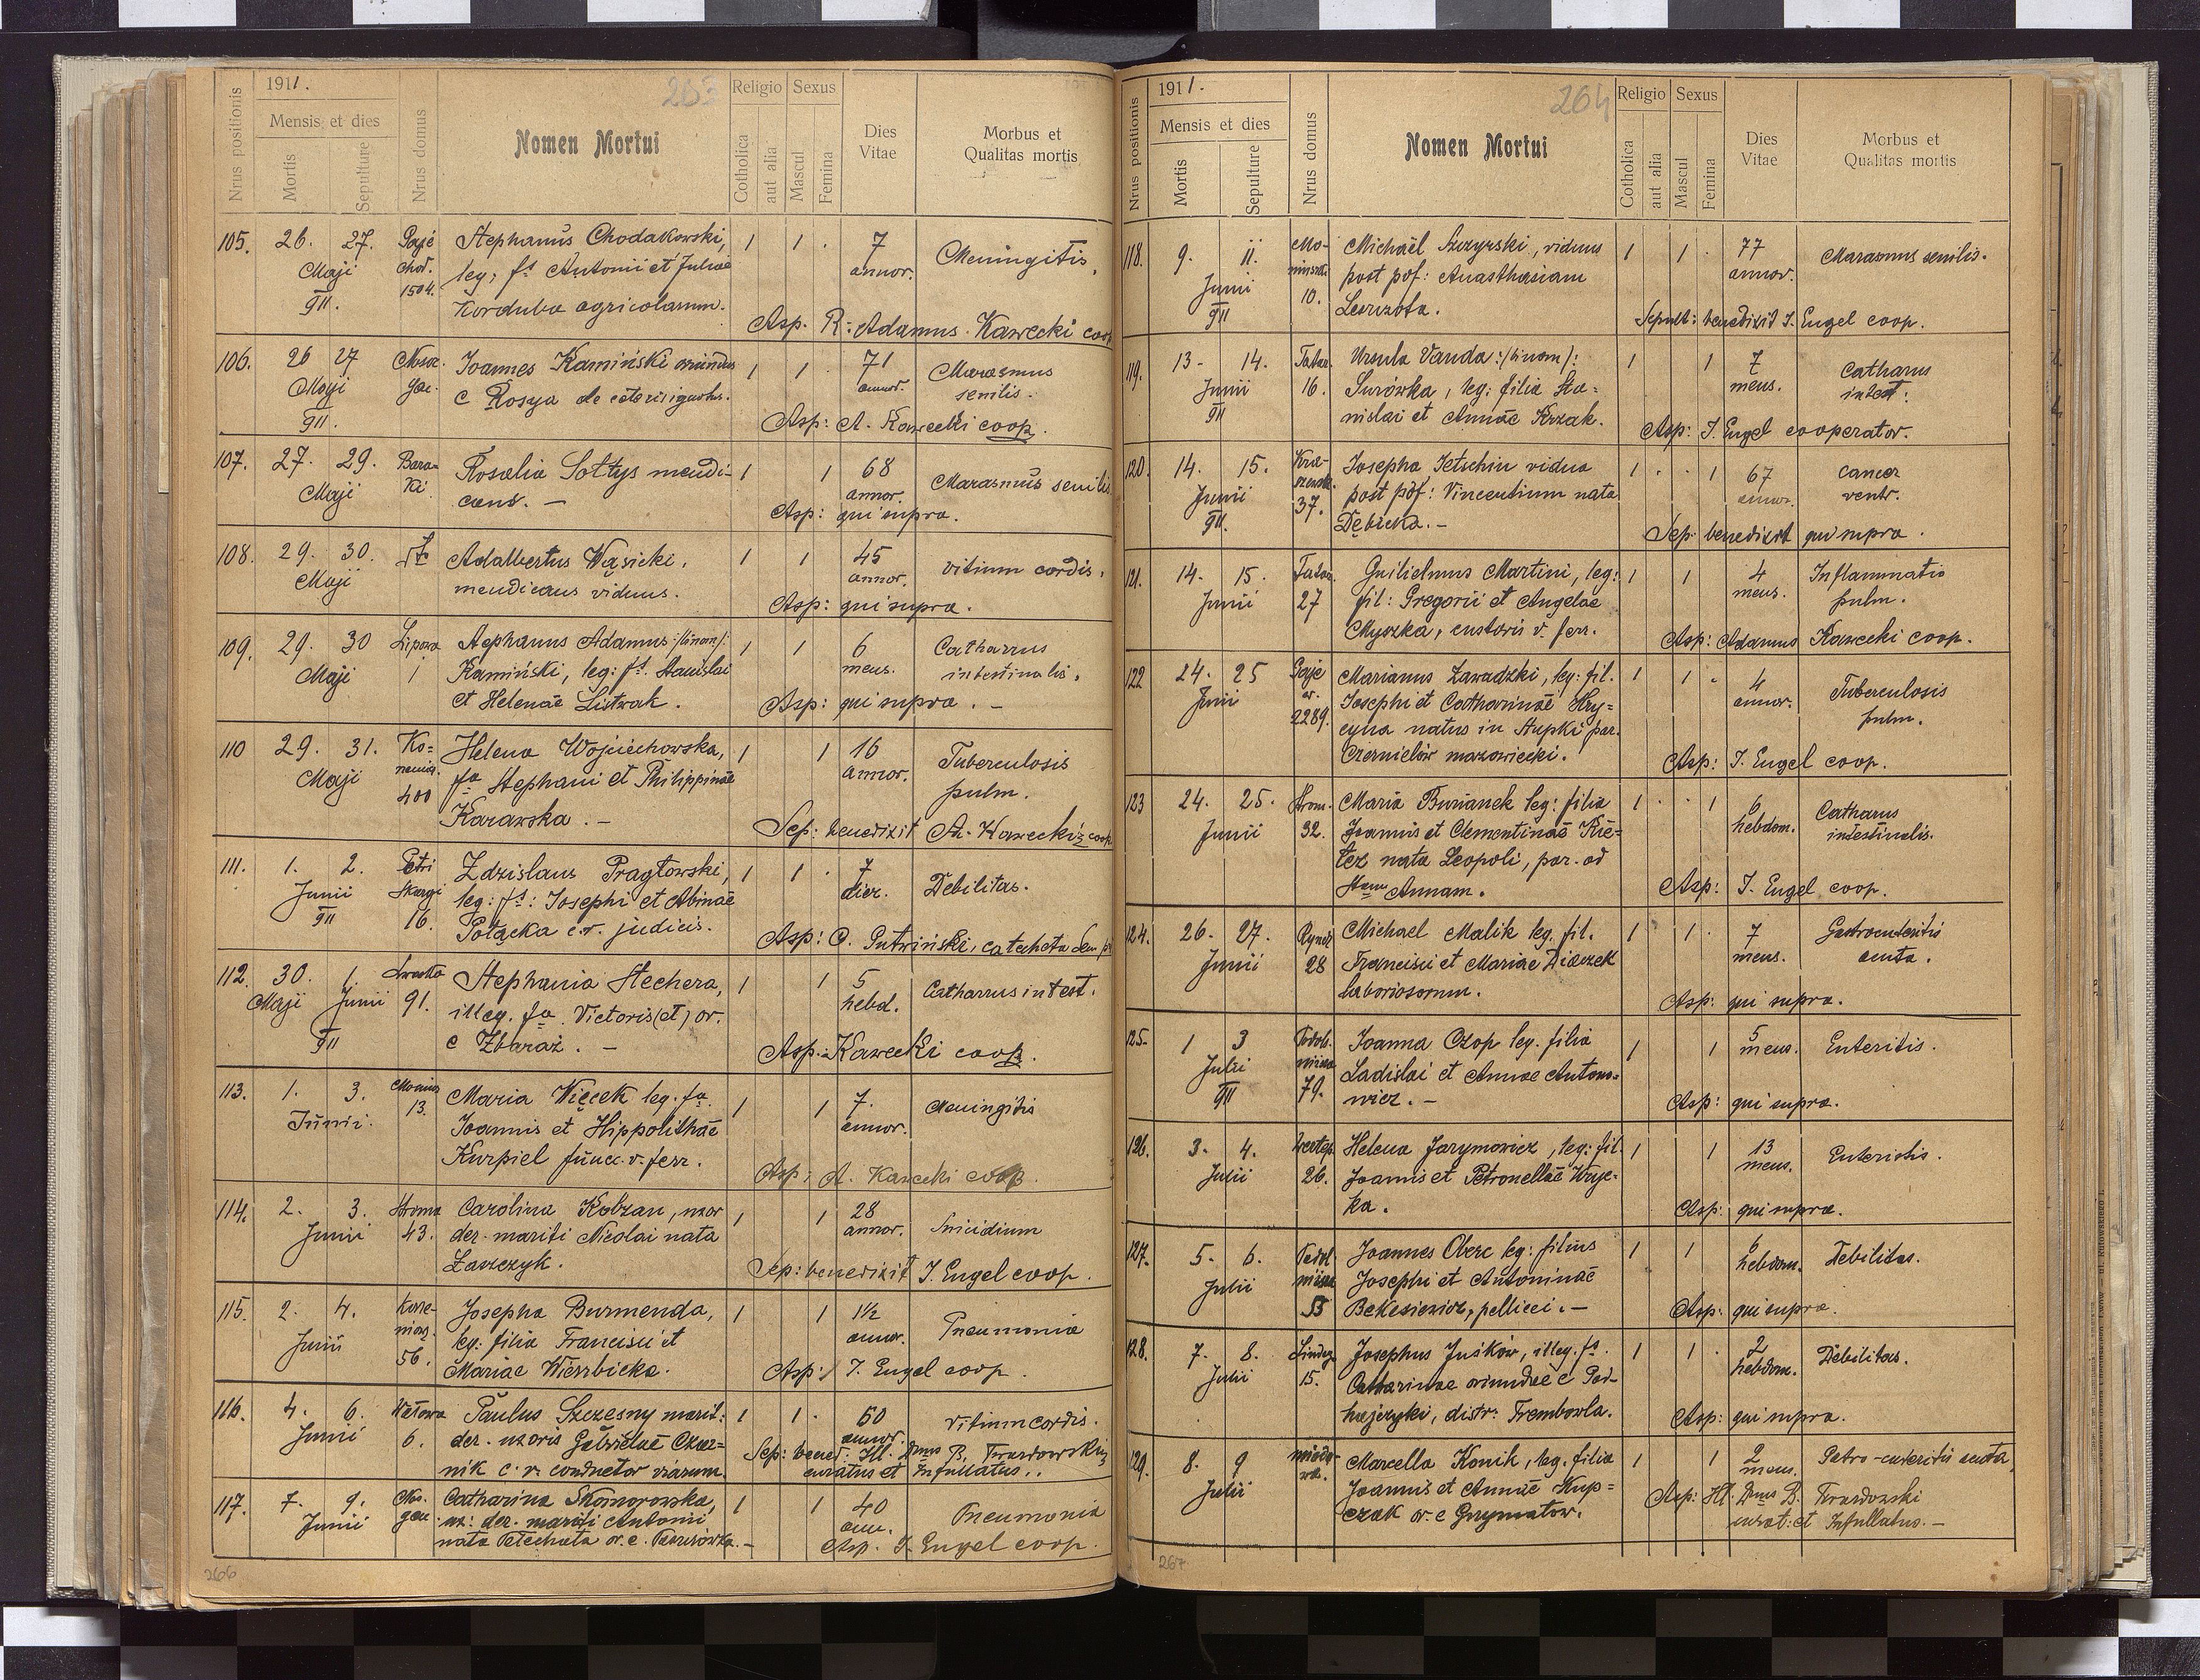 1911.
263
Nrus positionis
Mensis et dies
Mortis
Sepulture
Nrus domus
Nomen Mortui
Religio
Cotholica
aut alia
Sexus
Mascul
Femina
Dies Vitae
Morbus et Qualitas mortis
105. 26. 27. Gaje Stephanus Chodakowski, 1 1 . 7 Meningitis,
Maji chod. leg. fs Antonii et Juliae annor.
911. 1504. Korduba agricolarum.
Asp. R. Adamus Kawecki coop
106. 26 27 Joannes Kamiński oriundus 1 1 . 71 Marasmus
Maji e Rosya de ceteris ignotus. annor. senilis.
911.
Asp: A. Kawecki coop.
107. 27. 29. Bara- Rosalia Sołtys mendi- 1 1 68 Marasmus senilis
Maji ki cans. — annor.
Asp: qui supra.
108. 29. 30. Adalbertus Wąsicki, 1 1 45 vitium cordis.
Maji mendicans viduus. annor.
Asp: qui supra.
109. 29. 30 Lipowa Stephanus Adamus /binom/: 1 1 6 Catharrus
Maji 1 Kamiński, leg: fs. Stanislai mens. intestinalis.
et Helenae Listwak.
Asp: qui supra. —
110 29. 31. Ko- Helena Wojciechowska, 1 1 16 Tuberculosis
Maji fa Stephani et Philippinae annor. pulm.
400 Karawska. —
Sep: benedixit A. Kawecki coop
111. 1. 2. Petri Zdzislaus Pragłowski, 1 1 . 7 Debilitas.
Junii Skargi leg: fs: Josephi et Albinae dier.
911 16. Połącka c.r. judicis.
Asp: C. Putwiński, catecheta
112. 30. 1. Stephania Stechera, 1 1 5 Catharrus intest.
Maji Junii 91. illeg. fa. Victoris(et) or. hebd.
911 e Zbaraż. —
Asp: Kawecki coop.
113. 1. 3. Maria Więcek leg. fa. 1 1 7. Meningitis
Junii. 13. Joannis et Hippolithae annor.
Kurpiel func. v. ferr.
Asp: A. Kawecki coop.
114. 2. 3. Stroma Carolina Kobzan, uxor 1 1 28 Suicidium
Junii 43. der. mariti Nicolai nata annor.
Zaszczyk.
Sep: benedixit J. Engel coop.
115. 2. 4. Josepha Burmenda, 1 1 1½ Pneumonia
Junii leg: filia Francisci et annor.
56. Mariae Wierzbicka.
Asp: J. Engel coop.
116. 4. 6. Wałowa Paulus Szczesny marit: 1 1 . 60 Vitium cordis.
Junii 6. der. uxoris Gabrielae Czer- annor.
nik c. r. conductor viarum.
Sep: bened: Ill. Dmus B. Twardowski
curatus et Infullatus.
117. 7. 9. Catharina Skomorowska, 1 1 40 Pneumonia
Junii ux: der. mariti Antonii ann.
nata Petechata or. e.
Asp. J. Engel coop.
266
1911.
264
Nrus positionis
Mensis et dies
Mortis
Sepulture
Nrus domus
Nomen Mortui
Religio
Cotholica
aut alia
Sexus
Mascul
Femina
Dies Vitae
Morbus et Qualitas mortis
118. 9. 11. Michaël Szczyrski, viduus 1 1 . 77 Marasmus senilis.
Junii post pof: Anasthasiam annor.
911 10.
Sepult: benedixit J. Engel coop.
119. 13 - 14. Tatar. Ursula Vanda /binom/: 1 1 7 Catharus
Junii 16. Surówka, leg: filia Sta- mens. intest:
911 nislai et Annae Krzak.
Asp: J. Engel cooperator.
120. 14. 15. Josepha Jetschin vidua 1 . . 1 67 cancer
Junii post pof: Vincentium nata annor. ventr.
911. 37. Dębicka. —
Sep: benedixit qui supra.
121. 14. 15. Tatar. Guilielmus Martini, leg: 1 1 4 Inflammatio
Junii 27 fil: Gregorii et Angelae mens. pulm.
Myszka, custoris v. ferr.
Asp: Adamus Kawecki coop.
122 24. 25 Gaje Marianus Zawadzki, leg: fil. 1 1 . 4 Tuberculosis
Junii Josephi et Catharinae Hry- annor. pulm.
2289. cyna natus in Stupki par.
Czernielów mazowiecki.
Asp: J. Engel coop.
123 24. 25. Strom. Maria Burianek leg: filia 1 . . 1 6 Catharus
Junii 32. Joannis et Clementinae Kie- hebdom. intestinalis.
tez nata Leopoli, par. ad
Stam Annam.
Asp: J. Engel coop.
124. 26. 27. Rynek Michael Malik leg. fil. 1 1 . 7 Gastroenteritis
Junii 28 Francisci et Mariae Diaczek mens. acuta.
laboriosorum.
Asp: qui supra.
125. 1 3 Joanna Czop leg. filia 1 1 5 Enteritis.
Julii Ladislai et Annae Antono- mens.
911 79. wicz. —
Asp: qui supra.
126. 3. 4. Helena Jarymowicz, leg: fil. 1 1 13 Enteritis.
Julii 26. Joannis et Petronellae
ka. mens.
Asp: qui supra.
127. 5. 6. Joannes Oberc leg: filius 1 1 6 Debilitas.
Julii Josephi et Antoninae hebdom.
Bekesiewicz, pellicei. —
Asp: qui supra.
128. 7. 8. Josephus Juśków, illeg. fs. 1 1 . 2 Debilitas.
Julii 15. Catharinae oriundae e Pod- hebdom.
hajczyki, distr: Trembowla.
Asp: qui supra.
129. 8. 9 Marcella Konik, leg. filia 1 1 2
Julii Joannis et Annae Kup- mens.
czak or. e Grzymałow.
Asp: Ill. Dmus B. Twardowski
curat: et Infullatus. —
267